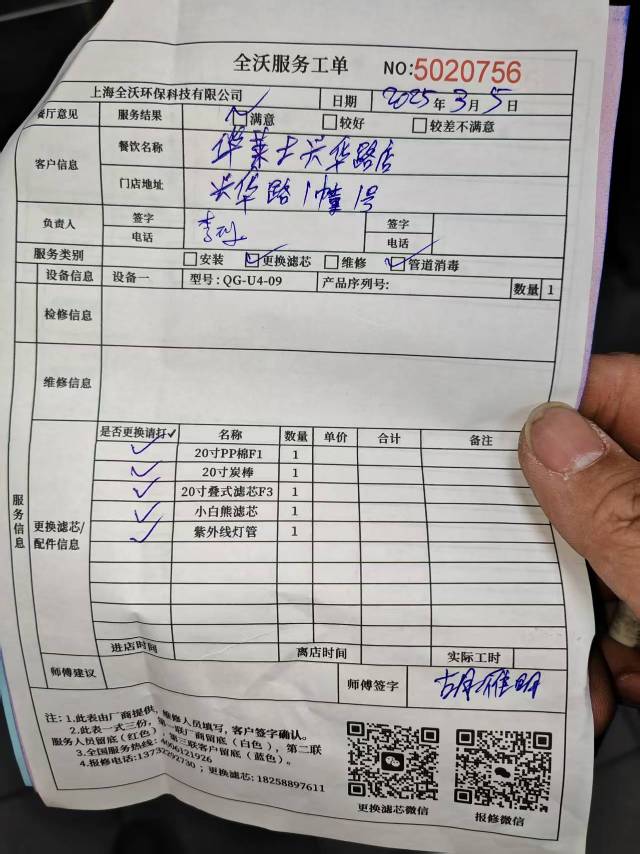 全沃服务工单 NO:5020756
上海全沃环保科技有限公司 日期 2025年3月5日
餐厅意见 服务结果 ✓满意 □较好 □较差不满意
客户信息 餐饮名称 华莱士兴华路店
门店地址 兴华路1幢1号
负责人 签字 签字
电话 电话
服务类别 □安装 ☑更换滤芯 □维修 ☑管道消毒
设备信息 设备一 型号:QG-U4-09 产品序列号: 数量 1
检修信息
维修信息
服务信息
更换滤芯/配件信息
是否更换请打✓ 名称 数量 单价 合计 备注
✓ 20寸PP棉F1 1
✓ 20寸炭棒 1
✓ 20寸叠式滤芯F3 1
✓ 小白熊滤芯 1
✓ 紫外线灯管 1
进店时间 离店时间 实际工时
师傅建议 师傅签字 胡雁明
注:1.此表由厂商提供,维修人员填写,客户签字确认。
2.此表一式三份,第一联厂商留底(白色),第二联
服务人员留底(红色),第三联客户留底(蓝色)。
3.全国服务热线:4006121926
4.报修电话:13732292730;更换滤芯:18258897611
更换滤芯微信 报修微信